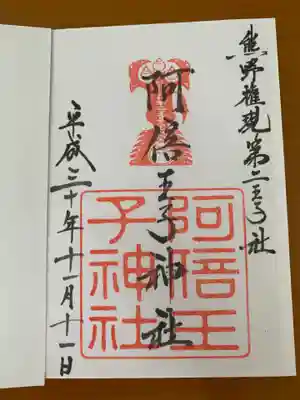 熊野権現第二王子社
阿倍王子神社
平成三十年十一月十一日
阿倍王
子神社